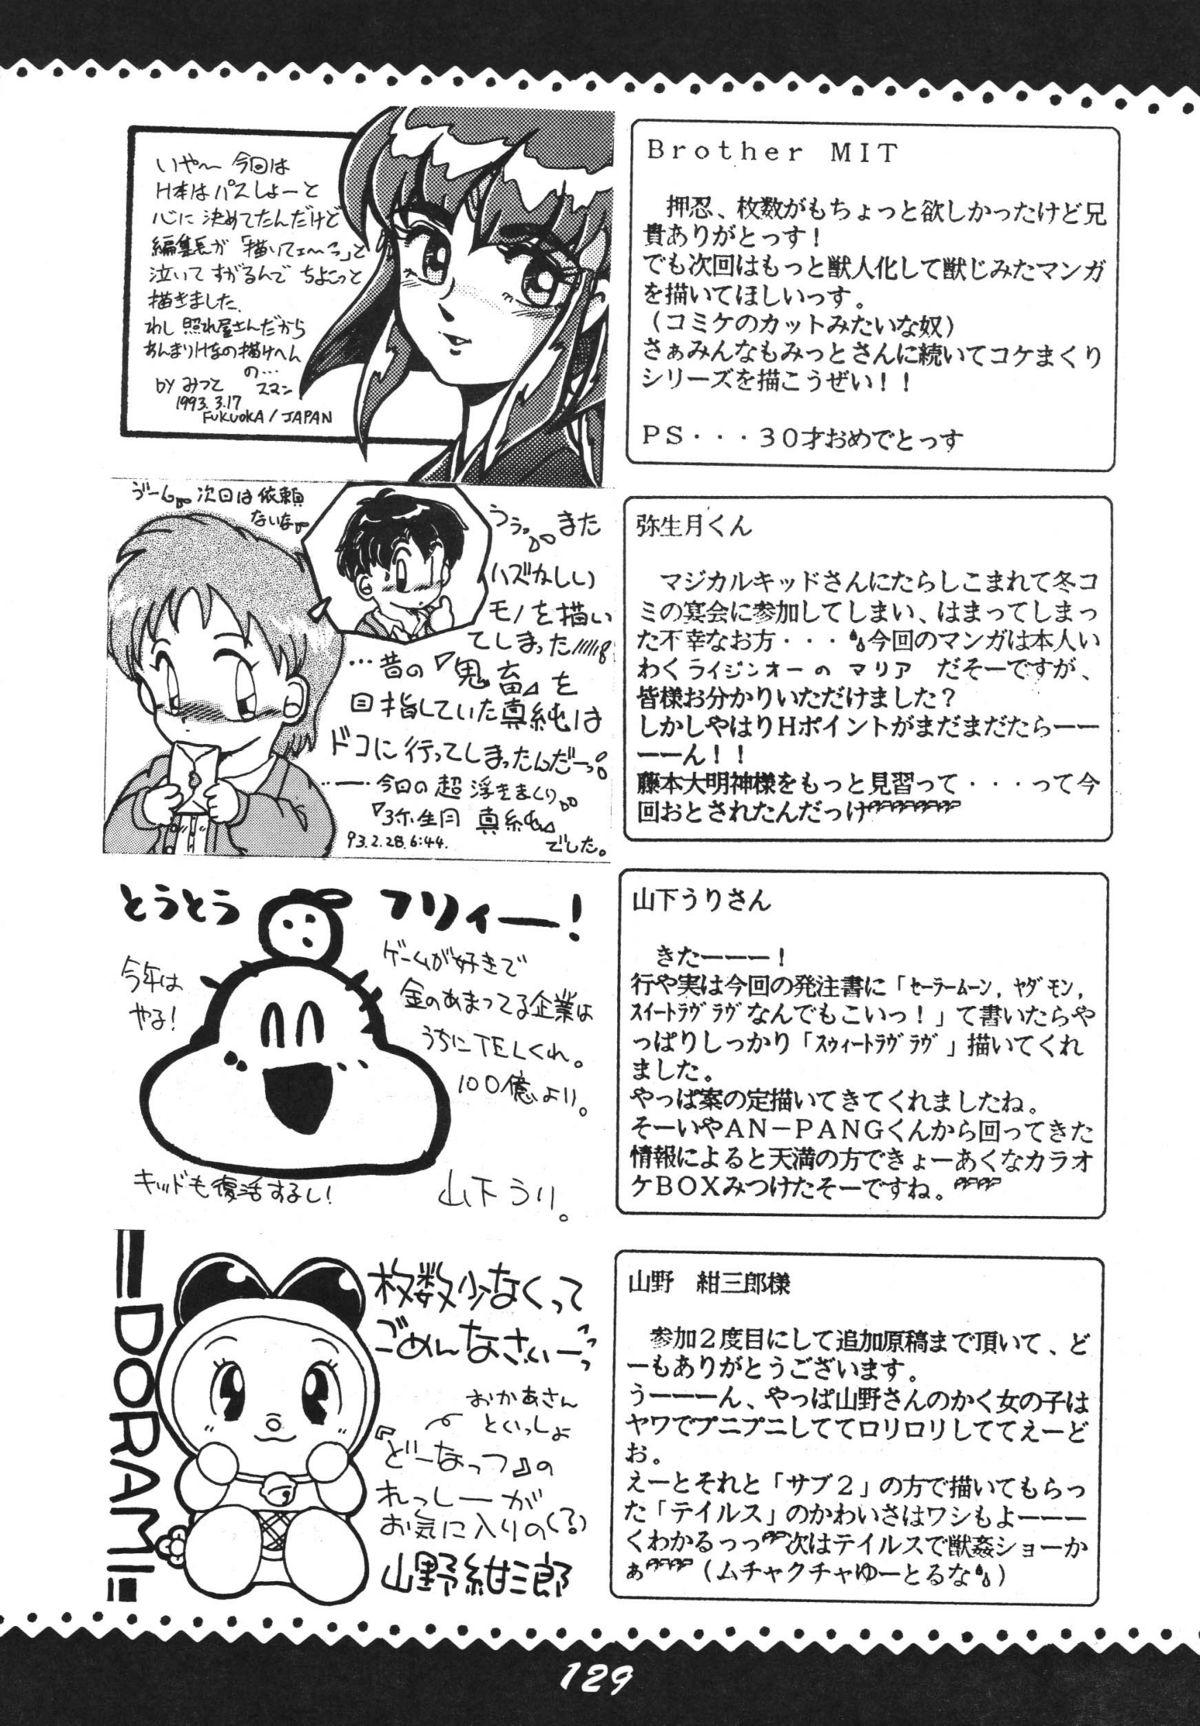 いや〜 今回は
H本はパスしよーと
心に決めてたんだけど
編集長が「描いてェ〜っ」と
泣いてすがるんで ちょこっと
描きました.
わし 照れ屋さんだから
あんまりHなの描けへん
の…
by みっと スマン
1993.3.17
FUKUOKA/JAPAN
Brother MIT
押忍、枚数がもちょっと欲しかったけど兄
貴ありがとっす！
でも次回はもっと獣人化して獣じみたマンガ
を描いてほしいっす。
（コミケのカットみたいな奴）
さぁみんなもみっとさんに続いてコケまくり
シリーズを描こうぜい！！
PS・・・30才おめでとっす
次回は依頼
ないな
うぅ。また
ハズカしい
モノを描い
てしまった
…昔の『鬼畜』を
目指していた真純は
ドコに行ってしまったんだーっ
――今回の超浮きまくり
『弥生月 真純』
でした。
93.2.28.6:44.
弥生月くん
マジカルキッドさんにたらしこまれて冬コ
ミの宴会に参加してしまい、はまってしまっ
た不幸なお方・・・今回のマンガは本人い
わくライジンオーの マリア だそーですが、
皆様お分かりいただけました？
しかしやはりHポイントがまだまだたらーー
ーーん！！
藤本大明神様をもっと見習って・・・って今
回おとされたんだっけ
とうとう フリィー！
今年は
やる！
ゲームが好きで
金のあまってる企業は
うちにTELくれ。
100億より。
キッドも復活するし！
山下うり。
山下うりさん
きたーーー！
行や実は今回の発注書に「ｾｰﾗｰﾑｰﾝ，ﾔﾀﾞﾓﾝ，
ｽｲｰﾄﾗｳﾞﾗｳﾞなんでもこいっ！」て書いたらや
っぱりしっかり「ｽｳｨｰﾄﾗｳﾞﾗｳﾞ」描いてくれ
ました。
やっぱ案の定描いてきてくれましたね。
そーいやAN－PANGくんから回ってきた
情報によると天満の方できょーあくなカラオ
ケBOXみつけたそーですね。
DORAMI
枚数少なくって
ごめんなさいーっ
おかあさん
といっしょ
『どーなっつ』の
れっしーが
お気に入りの(る)
山野紺三郎
山野 紺三郎様
参加2度目にして追加原稿まで頂いて、ど
ーもありがとうございます。
うーーーん、やっぱ山野さんのかく女の子は
ヤワでプニプニしててロリロリしててえーど
お。
えーとそれと「サブ2」の方で描いてもらっ
た「テイルス」のかわいさはワシもよーーー
くわかるっっ次はテイルスで獣姦ショーか
ぁ（ムチャクチャゆーとるな）
129